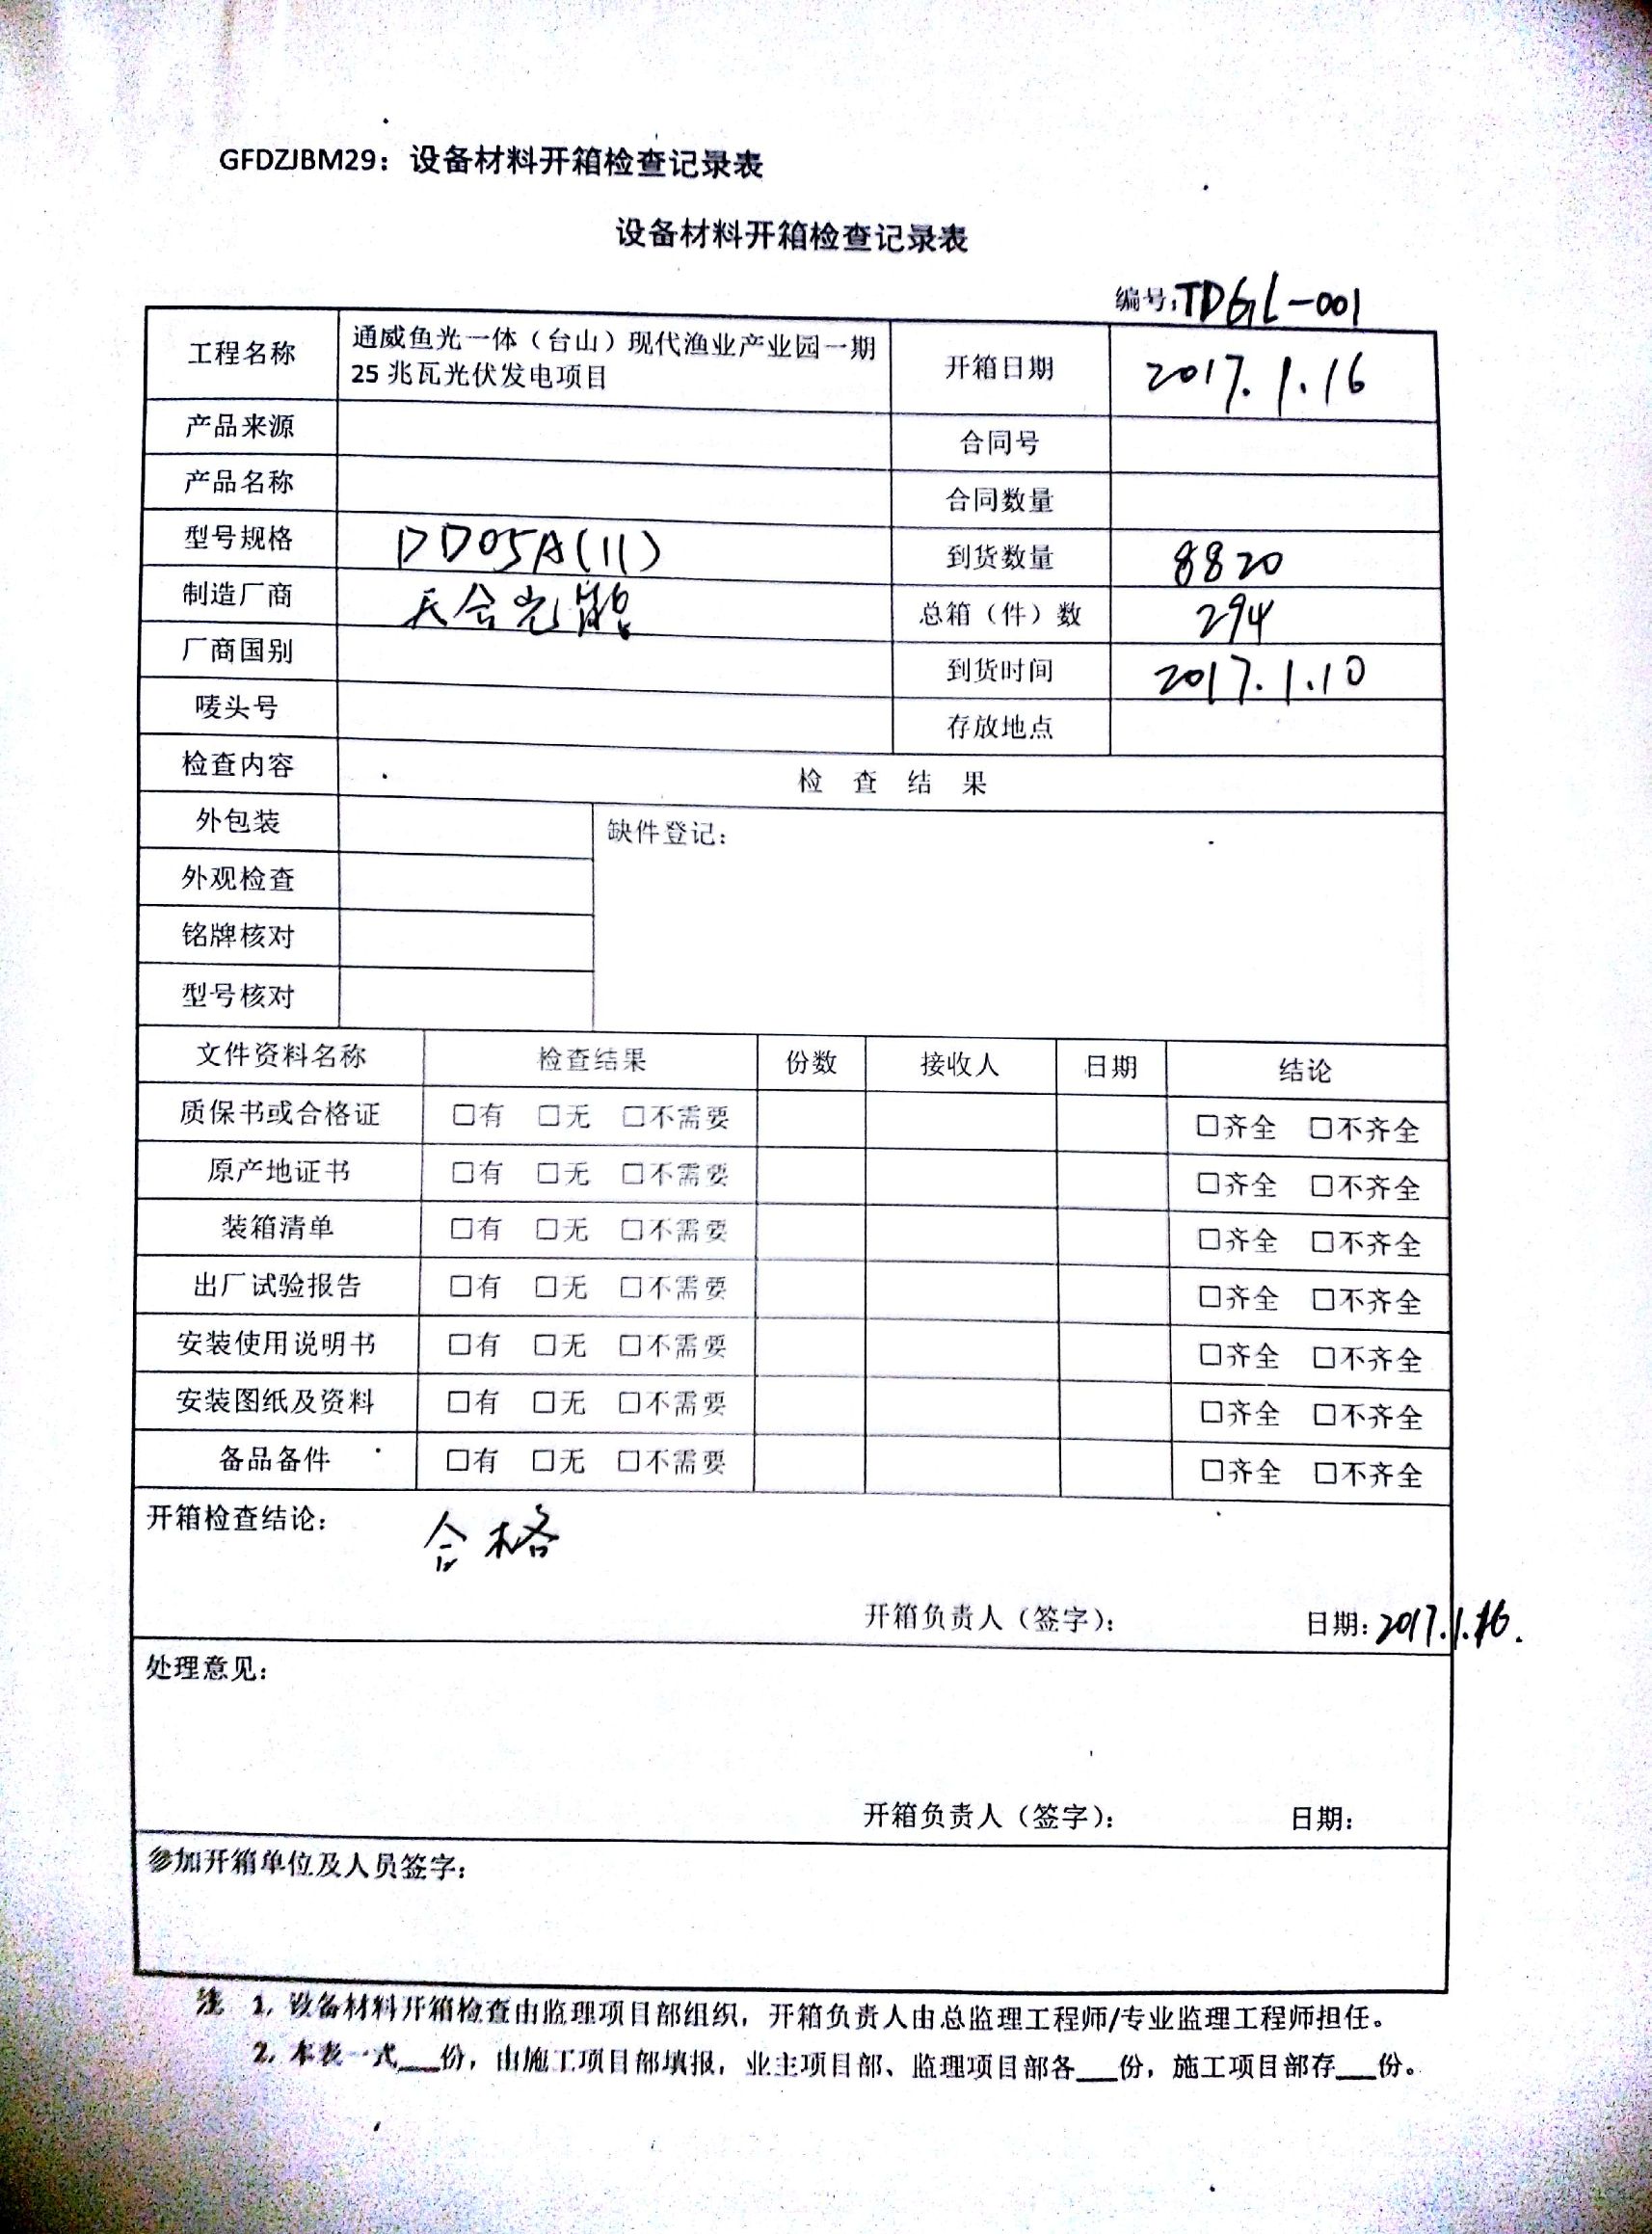 GFDZJBM29：设备材料开箱检查记录表
设备材料开箱检查记录表
编号:TDGL-001
工程名称 通威鱼光一体（台山）现代渔业产业园一期 开箱日期 2017.1.16
25 兆瓦光伏发电项目
产品来源 合同号
产品名称 合同数量
型号规格 DD05A(11) 到货数量 8820
制造厂商 天合光能 总箱（件）数 294
厂商国别 到货时间 2017.1.10
唛头号 存放地点
检查内容 检 查 结 果
外包装 缺件登记：
外观检查
铭牌核对
型号核对
文件资料名称 检查结果 份数 接收人 日期 结论
质保书或合格证 □有 □无 □不需要 □齐全 □不齐全
原产地证书 □有 □无 □不需要 □齐全 □不齐全
装箱清单 □有 □无 □不需要 □齐全 □不齐全
出厂试验报告 □有 □无 □不需要 □齐全 □不齐全
安装使用说明书 □有 □无 □不需要 □齐全 □不齐全
安装图纸及资料 □有 □无 □不需要 □齐全 □不齐全
备品备件 □有 □无 □不需要 □齐全 □不齐全
开箱检查结论： 合格
开箱负责人（签字）： 日期：2017.1.16.
处理意见：
开箱负责人（签字）： 日期：
参加开箱单位及人员签字：
注 1，设备材料开箱检查由监理项目部组织，开箱负责人由总监理工程师/专业监理工程师担任。
2. 本表一式___份，由施工项目部填报，业主项目部、监理项目部各___份，施工项目部存___份。